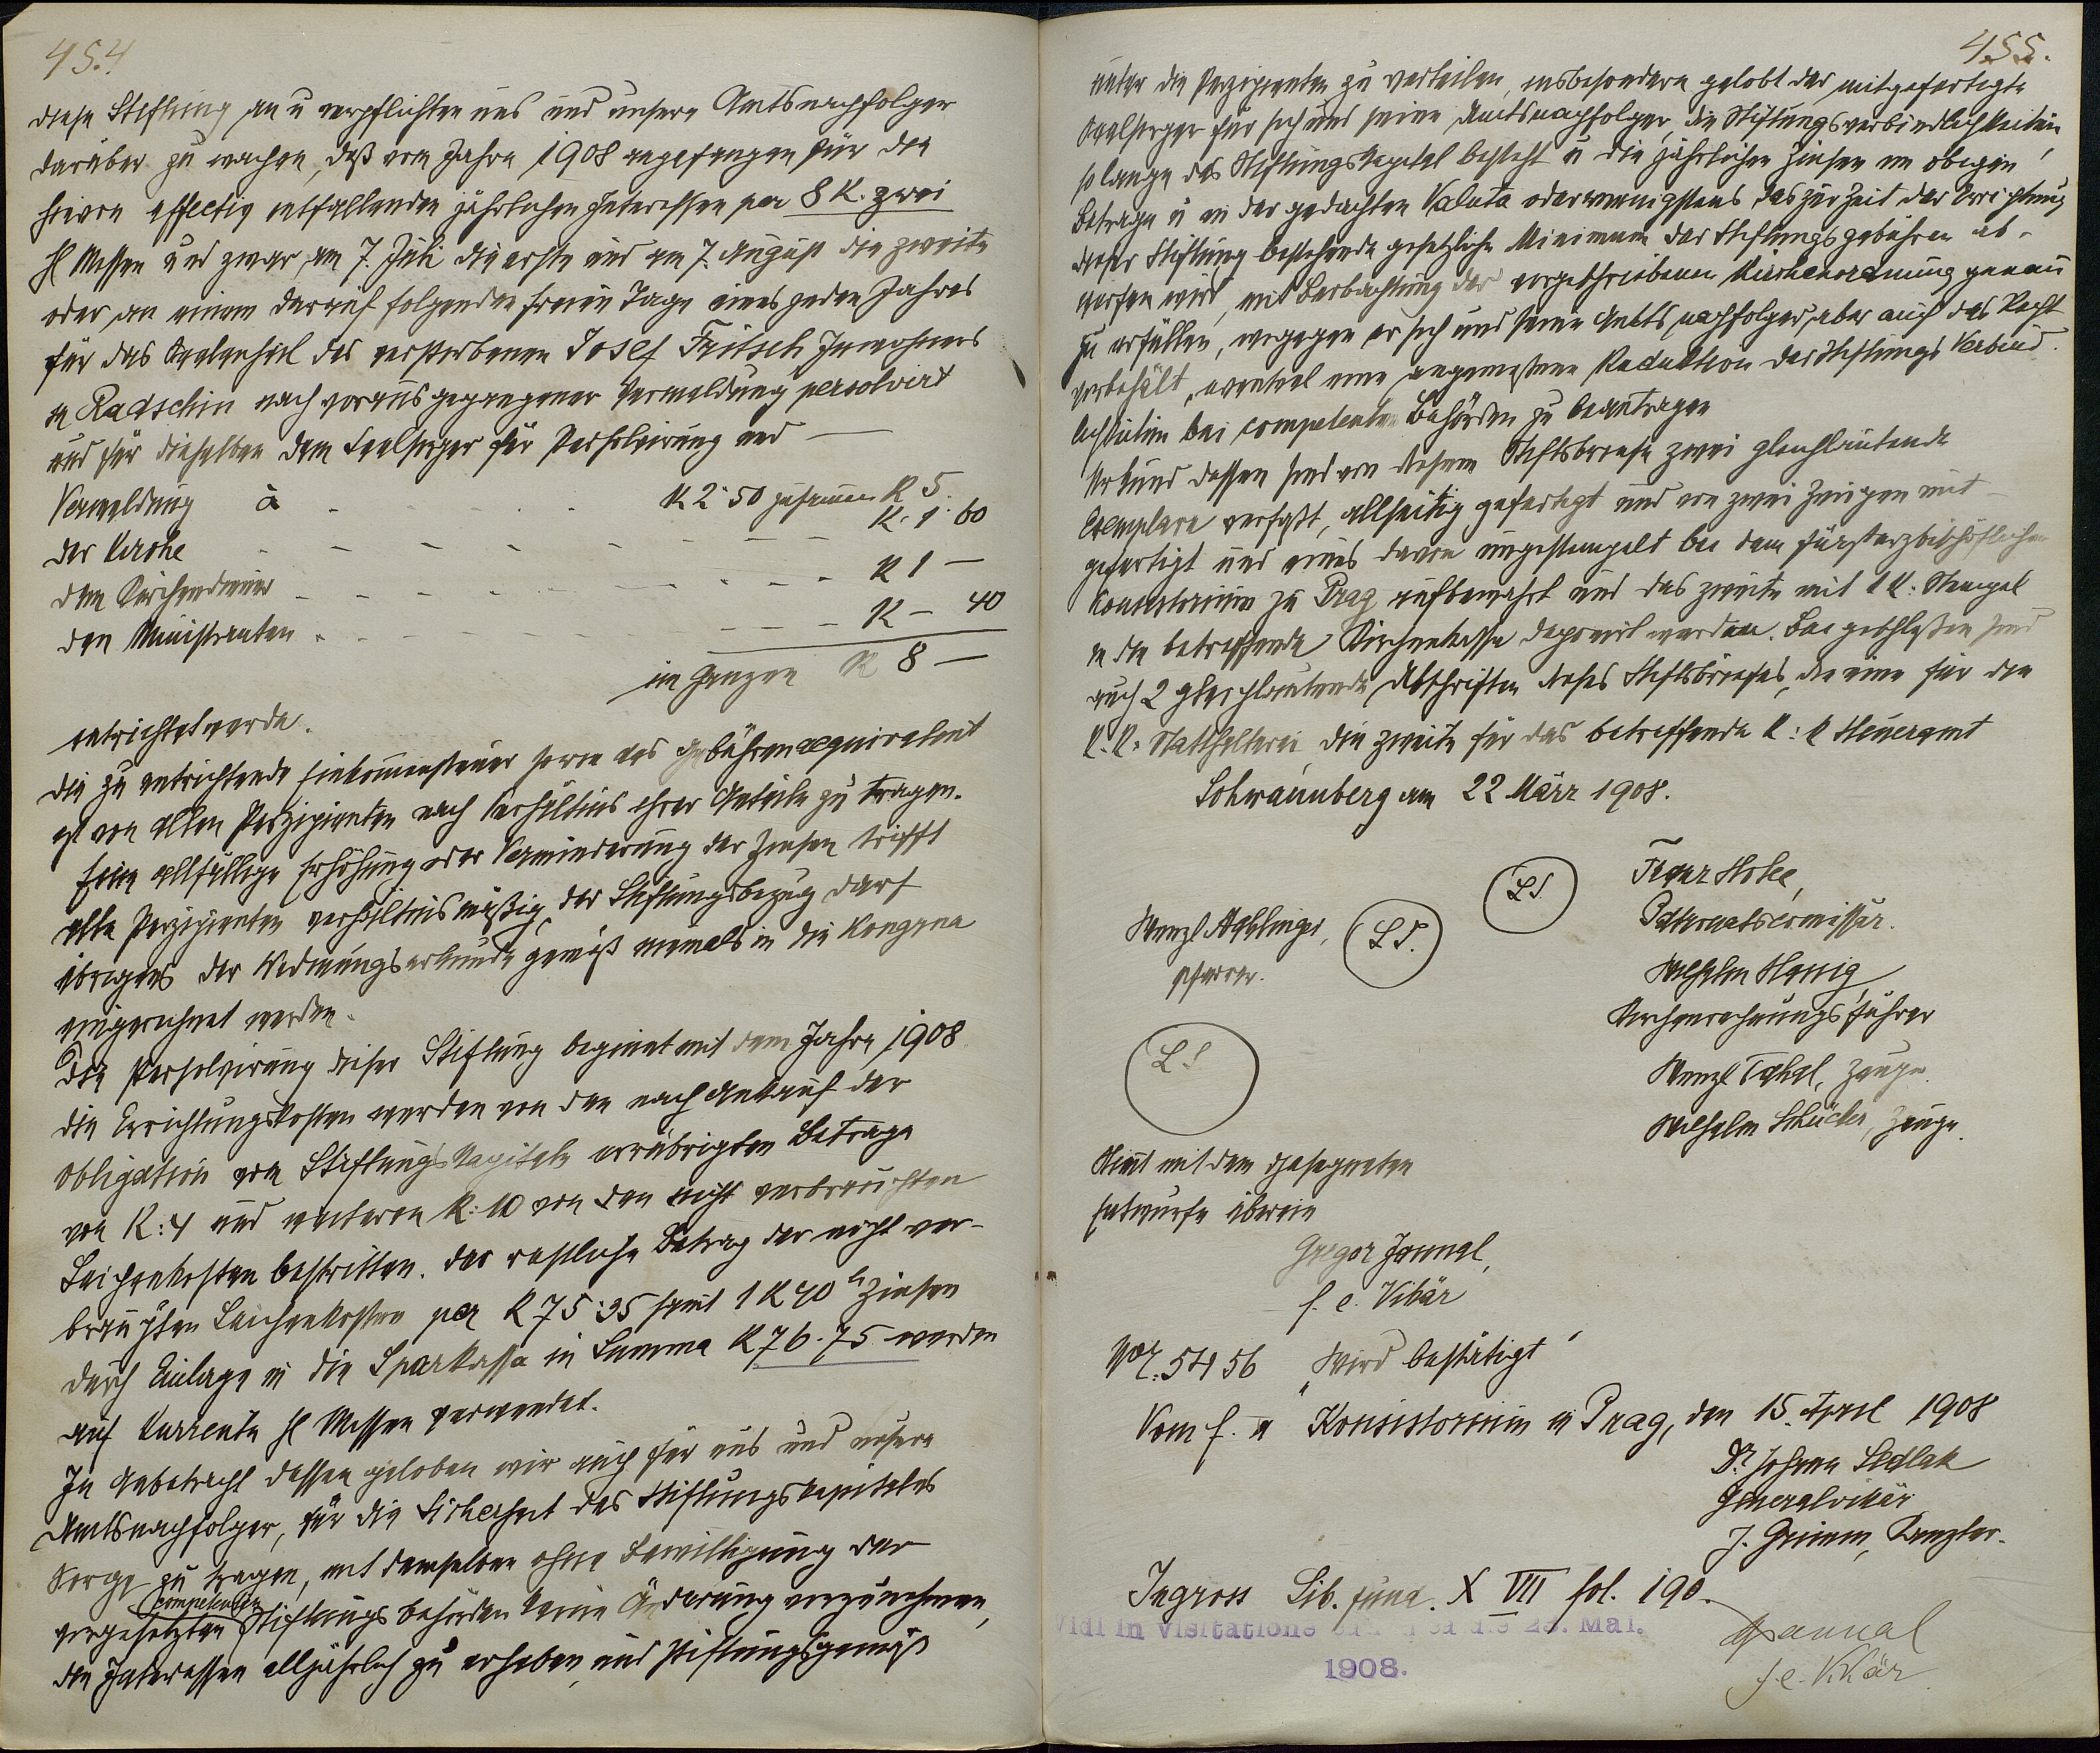 454
diese Stiftung an u verpflichten uns und unsere Amtsnachfolger
darüber zu wachen, daß vom Jahre 1908 angefangen für die
hievon effectiv entfallenden jährlichen Interessen per 8 K. zwei
hl Messen und zwar am 7. Juli die erste und am 7. August die zweite
oder an einem darauf folgenden freien Tage eines jeden Jahres
für das Seelenheil des verstorbenen Josef Fritsch Inwohners
in Radschin nach vorausgegangener Vermeldung persolvirt
und für dieselben dem Seelsorger für Persolvirung und
Vermeldung à K 2·50 zusammen K 5.
der Kirche K. 1·60
dem Kirchendiener K 1 —
den Ministranten K — 40
im Ganzen K 8 —
entrichtet werde.
Die zu entrichtende Einkommensteuer sowie das Gebührenaequivalent
ist von allen Perzipienten nach Verhältnis ihrer Anteile zu tragen.
Eine allfällige Erhöhung oder Verminderung der Zinsen trifft
alle Perzipienten verhältnismäßig, der Stiftungsbezug darf
übrigens der Widmungsurkunde gemäß niemals in die Kongrua
eingerechnet werden.
Die Persolvirung dieser Stiftung beginnt mit dem Jahre 1908
die Errichtungskosten werden von den nach Ankauf der
Obligation vom Stiftungskapitale erübrigten Betrage
von K: 4 und weiteren K: 10 von den nicht verbrauchten
Leichenkosten bestritten. Der restliche Betrag der nicht ver-
brauchten Leichenkosten per K 75:35 samt 1 K 40 h Zinsen
durch Einlage in die Sparkassa in Summa K 76·75 werden
auf kurrente hl Messen verwendet.
In Anbetracht dessen geloben wir auch für uns und unsere
Amtsnachfolger, für die Sicherheit des Stiftungskapitales
Sorge zu tragen, mit demselben ohne Bewilligung der
competenten
vorgesetzten Stiftungsbehörden keine Änderung vorzunehmen,
die Interessen alljährlich zu erheben und stiftungsgemäß
455.
unter die Perzipienten zu verteilen, insbesondere gelobt der mitgefertigte
Seelsorger für sich und seine Amtsnachfolger, die Stiftungsverbindlichkeiten,
solange das Stiftungskapital besteht u die jährlichen Zinsen im obigen
Betrage u in der gedachten Valuta oder wenigstens das zur Zeit der Errichtung
dieser Stiftung bestehende gesetzliche Minimum der Stiftungsgebühren ab-
werfen wird, mit Beobachtung der vorgeschriebenen Kirchenordnung genau
zu erfüllen, wogegen er sich und seine Amtsnachfolger aber auch das Recht
vorbehält, eventuel eine angemessene Reduktion der Stiftungs Verbind-
lichkeiten bei competenten Behörden zu beantragen
Urkund dessen sind von diesem Stiftsbriefe zwei gleichlautende
Exemplare verfaßt, allseitig gefertigt und von zwei Zeugen mit-
gefertigt und eines davon ungestempelt bei dem fürsterzbischöflichen
Konsistorium zu Prag aufbewahrt und das zweite mit 1 K: Stempel
in die betreffende Kirchenkasse deponirt worden. Beigeschlossen sind
auch 2 gleichlautende Abschriften dieses Stiftsbriefes, die eine für die
K. K. Statthalterei, die zweite für das betreffende K: K Steueramt
Schwaunberg am 22 März 1908.
LS.
LS.
LS
Wenzl
Pfarrer.
Franz
Patronatscomissär.
Wilhelm
Kirchenrechnungsführer
Wenzl Zeuge
Wilhelm Zeuge.
Stimt mit dem
Entwurfe überein
Gregor Jaunal,
f. e. Vikär
No. 5456 Wird bestätigt
Vom f. e Konsistorium in Prag, den 15. April 1908
Dr Johann Sedlak
Generalvikär
J. Grimm, Kanzler.
Ingross Lib. fund. X VII fol. 190.
Vidi in visitatione 23. Mai.
1908.
Jaunal
f. e. Vikär